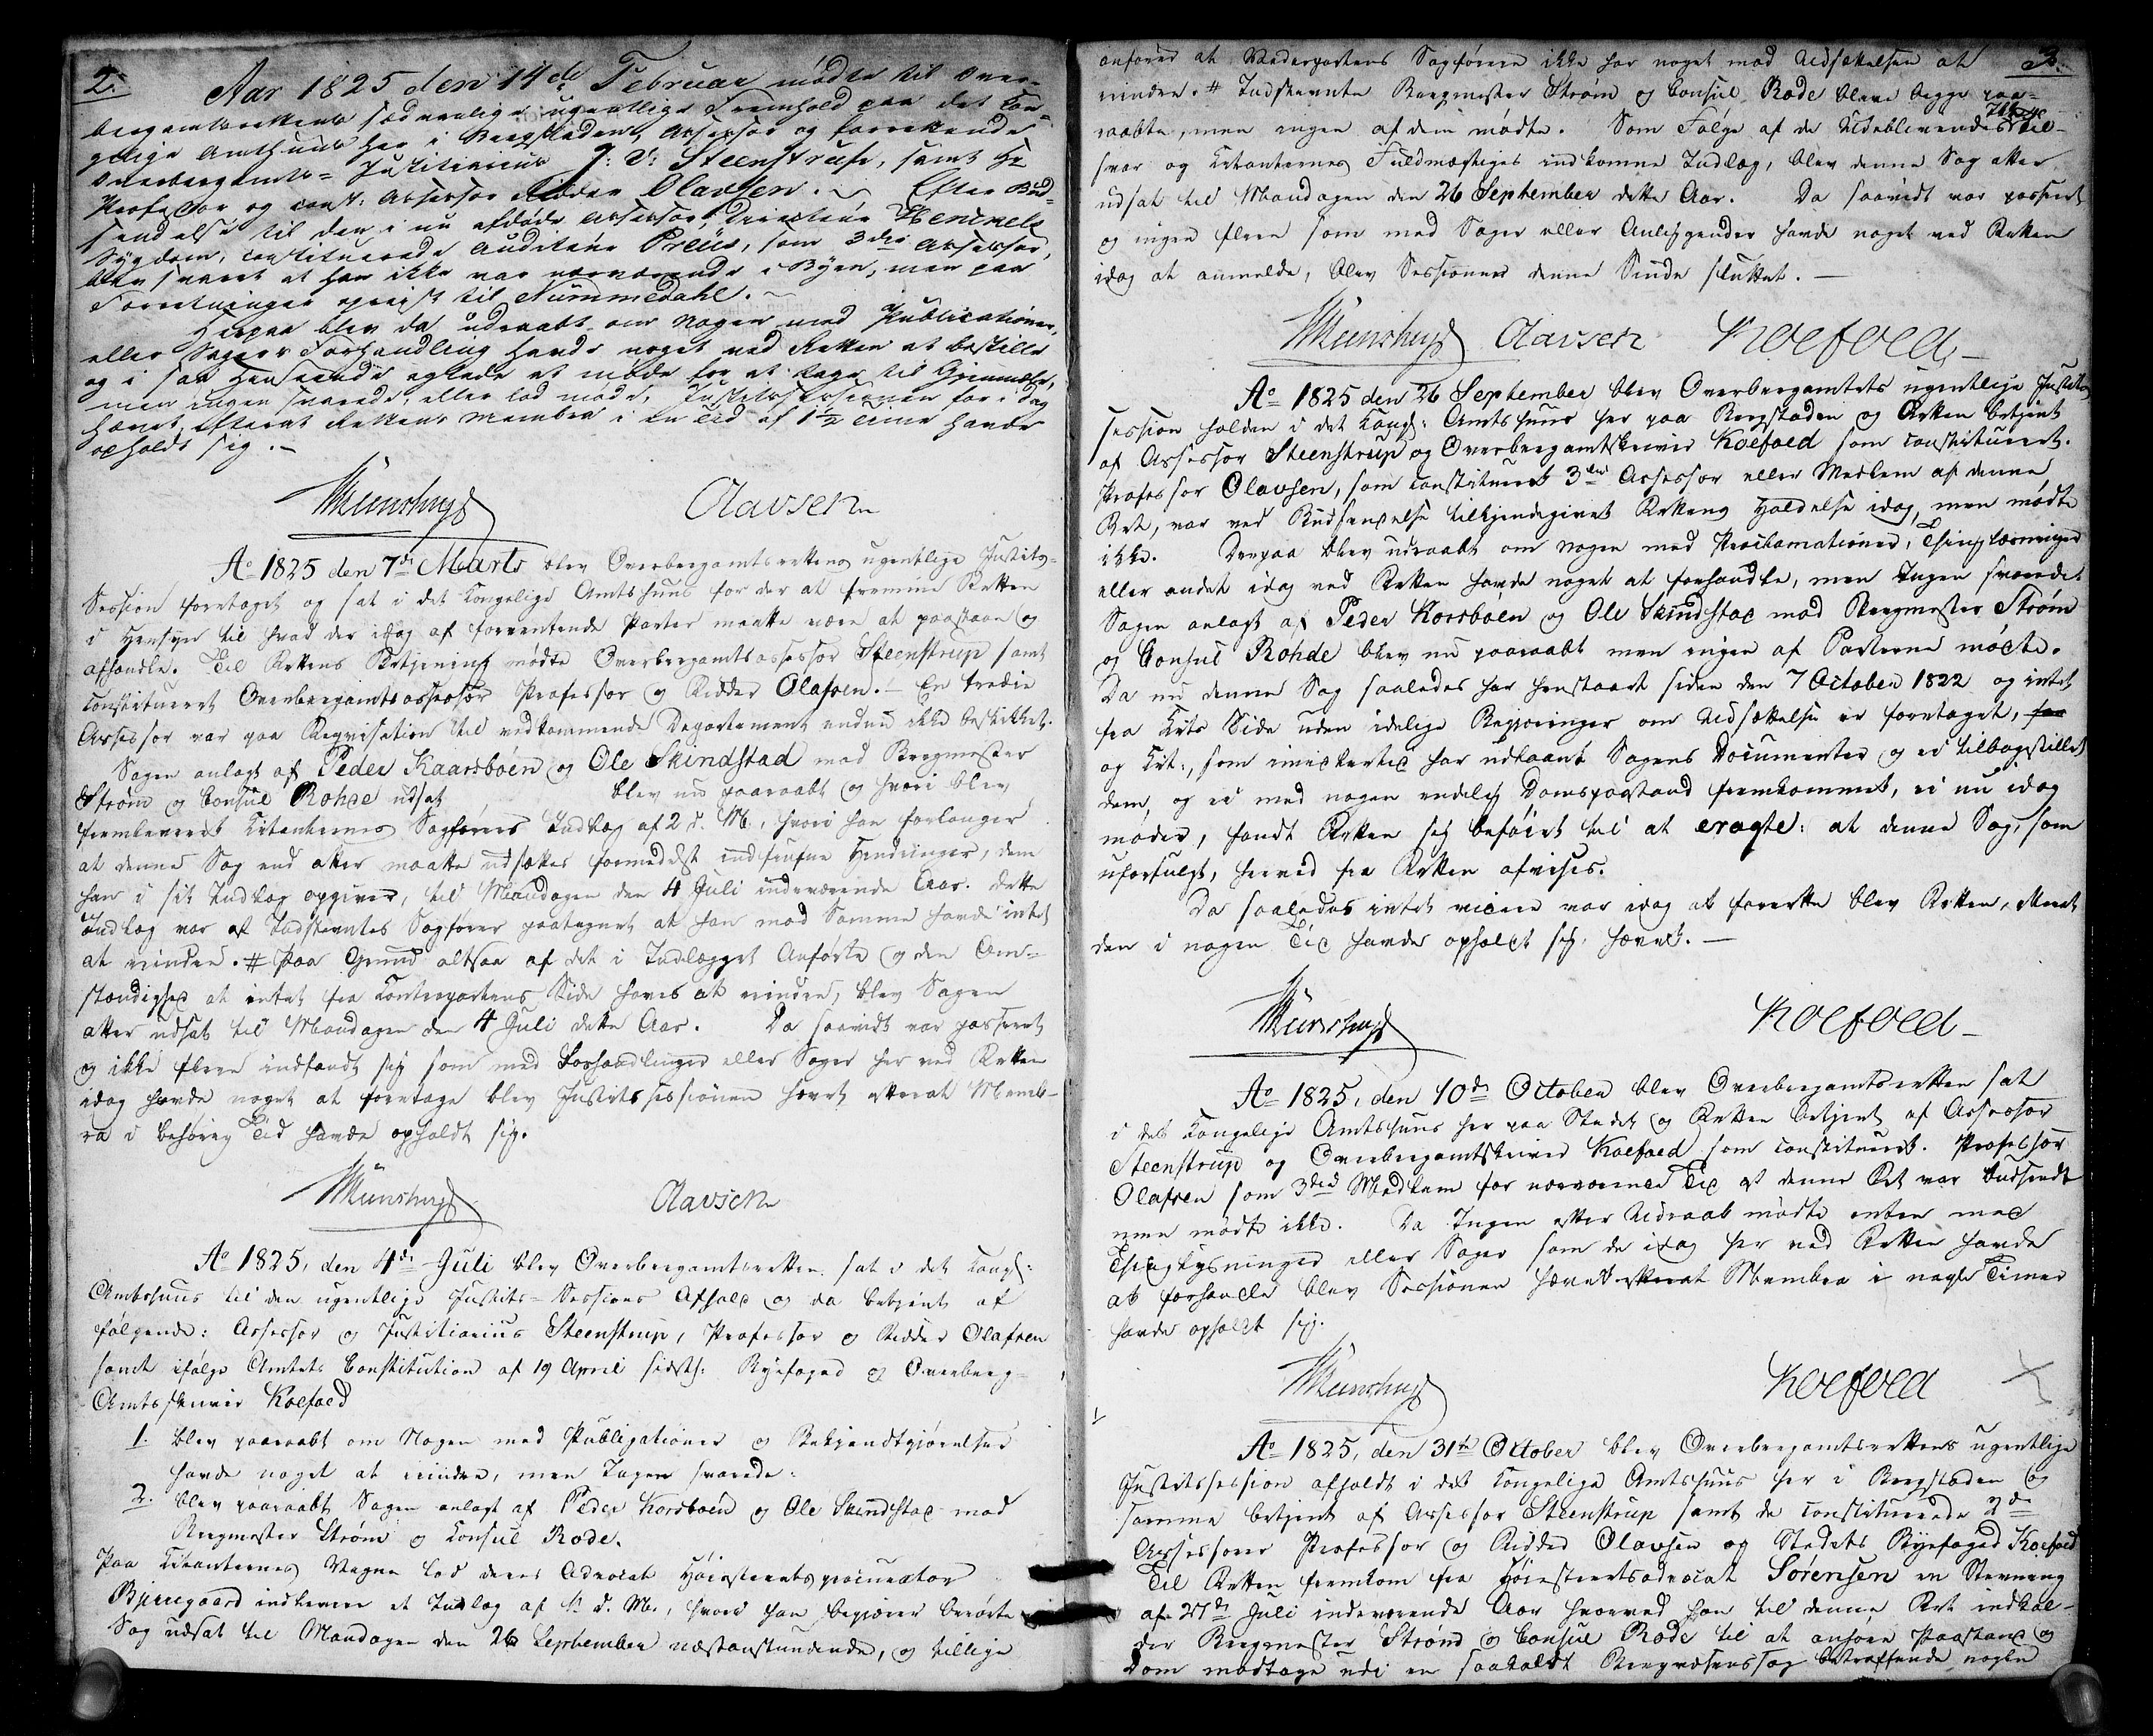 2.
Aar 1825 den 14de Februar mødte til Over-
bergamtsrettens sædvanlige ugentlige Fremhold paa det Kon-
gelige Amthuus her i Bergstaden Assessor og forrettende
Overbergamts-Justitiarius J: V: Steenstrup, samt Hr
Professor og const: Assessor Ridder Olavsen. Efter Bud-
sendelse til den i nu afdøde Assessor, Directeur Henckels
Sygdom, constituerede Auditeur Preüs, som 3die Assessor,
blev svaret at han ikke var nærværende i Byen, men paa
Forretninger opreist til Nummedahl.
Herpaa blev da udraabt om Nogen med Publicationer,
eller Sagers Forhandling havde noget ved Retten at bestille
og i saa Henseende agtede at møde for at tage til Gjenmæle,
men ingen svarede eller lod møde, Justitssessionen for i Dag
hævet, efterat Rettens Membra i en Tid af 1½ Time havde
opholdt sig.
Olavsen
Ao 1825 den 7de Marts blev Overbergamtsrettens ugentlige Justits-
Session foretaget og sat i det Kongelige Amtshuus for der at fremme Retten
i Hensyn til hvad der idag af forventende Parter maatte være at paastaae og
afhandle. Til Rettens Betjening mødte Overbergamtsassessor Steenstrup samt
constitueret Overbergamtsassessor Professor og Ridder Olafsen. En tredie
Assessor var paa Reqvisition til vedkommende Departement endnu ikke beskikket.
Sagen anlagt af Peder Kaarsboen og Ole Skindstad mod Bergmester
Strøm og Consul Rohde udsat blev nu paaraabt og hvori blev
fremleveret Citanternes Sagførers Indlæg af 2 d. M., hvori han forlanger
at denne Sag end atter maatte udsættes formedelst indtrufne Hindringer, dem
han i sit Indlæg opgiver, til Mandagen den 4 Juli indeværende Aar. Dette
Indlæg var af Indstevntes Sagfører paategnet at han mod Samme havde intet
at erindre. # Paa Grund altsaa af det i Indlægget Anførte og den Om-
stændighed at intet fra Contrapartens Side haves at erindre, blev Sagen
atter udsat til Mandagen den 4 Juli dette Aar. Da saavidt var passeret
og ikke flere indfandt sig som med Forhandlinger eller Sager her ved Retten
idag havde noget at foretage blev Justitssessionen hævet efterat Memb-
ra i behørig Tid havde opholdt sig.
Olavsen
Ao 1825, den 4de Juli blev Overbergamtsretten sat i det Kongl:
Amtshuus til den ugentlige Justits-Sessions Afhold og da betjent af
følgende: Assessor og Justitiarius Steenstrup, Professor og Ridder Olafsen
samt ifølge Amtets Constitution af 19 April sidstl: Byefoged og Overberg-
Amtsskriver Koefoed
1. blev paaraabt om Nogen med Publicationer og Bekjendtgjørelser
havde noget at erindre, men Ingen svarede.
2. blev paaraabt Sagen anlagt af Peder Korsboen og Ole Skindstad mod
Bergmester Strøm og Consul Rode.
Paa Citanternes Vegne lod deres Advocat Høiesteretsprocurator
Bjerregaard indlevere et Indlæg af d. M., hvori han begjærer berørte
Sag udsat til Mandagen den 26 September næstanstundende, og tillige
3.
anfører at Vederpartens Sagfører ikke har noget mod Udsættelsen at
erindre. # Indstevnte Bergmester Strøm og Consul Rode bleve begge paa-
raabte, men ingen af dem mødte. Som Følge af de Udeblevendes Til-
svar og Citanternes Fuldmægtiges indkomne Indlæg, blev denne Sag atter
udsat til Mandagen den 26 September dette Aar. Da saavidt var passeret
og ingen flere som med Sager eller Anliggender havde noget ved Retten
idag at anmelde, blev Sessionen denne Sinde sluttet.
Olavsen Koefoed
Ao 1825 den 26 September blev Overbergamtets ugentlige Justits
session holden i det Kongl: Amtshuus her paa Bergstaden og Retten betjent
af Assessor Steenstrup og Overbergamtskriver Koefoed som constitueret.
Professor Olavsen, som constitueret 3die Assessor eller Medlem af denne
Ret, var ved Budsendelse tilkjendegivet Rettens Holdelse idag, men mødte
ikke. Derpaa blev udraabt om nogen med Proclamationer, Thinglæsninger
eller andet idag ved Retten havde noget at forhandle, men Ingen svarede.
Sagen anlagt af Peder Korsboen og Ole Skindstad mod Bergmester Strøm
og Consul Rohde blev nu paaraabt men ingen af Parterne mødte.
Da nu denne Sag saaledes har henstaaet siden den 7 October 1822 og intet
fra Cits Side uden idelige Begjæringer om Udsættelse er foretaget,
og Cit:, som imidlertid har udlaant Sagens Documenter og ei tilbagestillet
dem, og ei med nogen endelig Domspaastand fremkommet, ei nu idag
møder, fandt Retten sig beføiet til at eragte: at denne Sag, som
uforfulgt, herved fra Retten afvises.
Da saaledes intet videre var idag at forrette blev Retten, efterat
den i nogen Tid havde opholdt sig, hævet.
Koefoed
Ao 1825, den 10de October blev Overbergamtsretten sat
i det Kongelige Amtshuus her paa Stedet og Retten betjent af Assessor
Steenstrup og Overbergamtskriver Koefoed som constitueret. Professor
Olafsen som 3die Medlem for nærværende Tid af denne Ret var budsendt
men mødte ikke. Da Ingen efter Udraab mødte enten med
Thinglysninger eller Sager som de idag her ved Retten havde
at forhandle blev Sessionen hævet efterat Membra i nogle Timer
havde opholdt sig.
Koefoed
Ao 1825, den 31te October blev Overbergamtsrettens ugentlige
Justitssession afholdt i det Kongelige Amtshuus her i Bergstaden og
samme betjent af Assessor Steenstrup samt de constituerede 2de
Assessorer Professor og Ridder Olavsen og Stedets Byefoged Koefoed
Til Retten fremkom fra Høiesteretsadvocat Sørensen en Stevning
af 27de Juli indeværende Aar hvorved han til denne Ret indkal-
der Bergmester Strøm og Consul Rode til at anhøre Paastand og
Dom modtage udi en saakaldt Bergvæsenssag betræffende nogle